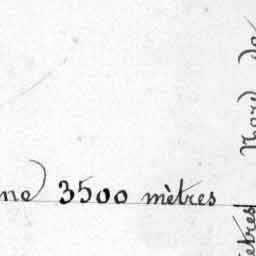 ne) 3500 mètres
Nord de
ètres